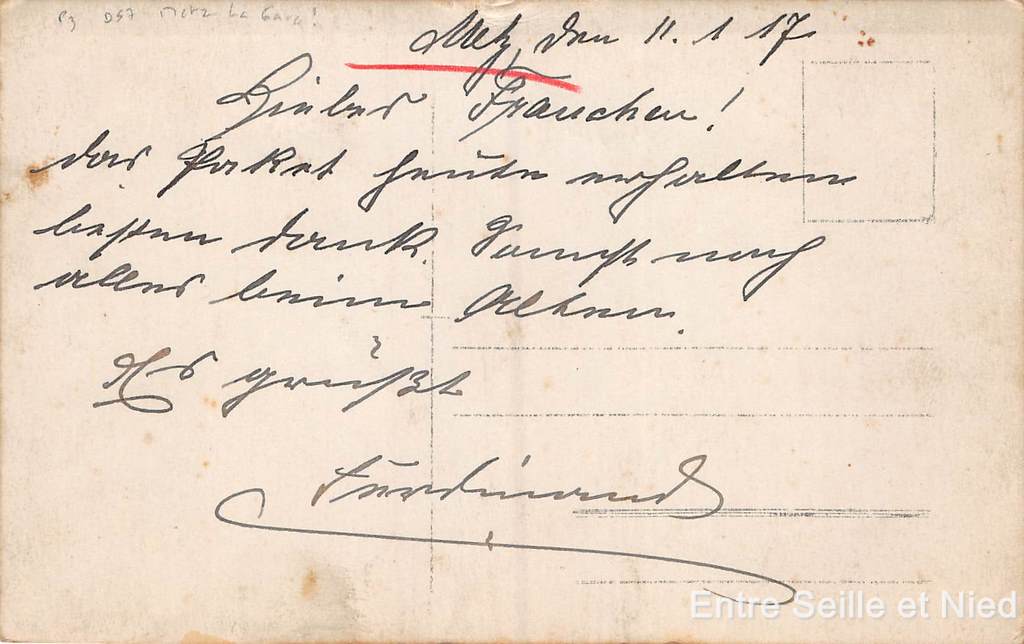 P3 DS7 Metz La Gare!
Metz, den 11. 1 17.
Liebes Frauchen!
das Paket heute erhalten
besten dank. Sonst noch
alles beim Alten.
Es grüßt
Ferdinand
Entre Seille et Nied